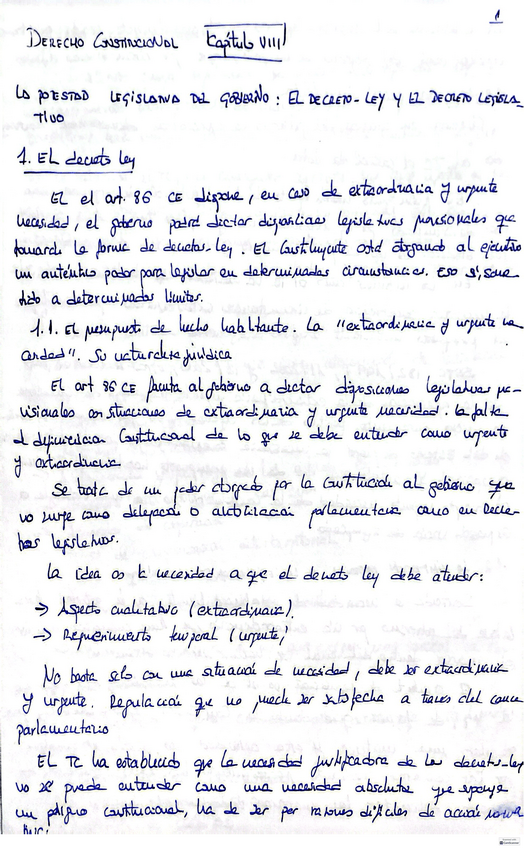 1
DERECHO CONSTITUCIONAL Capítulo VIII
LA POTESTAD LEGISLATIVA DEL GOBIERNO: EL DECRETO-LEY Y EL DECRETO LEGISLA-
TIVO
1. EL decreto ley
EL el art. 86 CE dispone, en caso de extraordinaria y urgente
necesidad, el gobierno podrá dictar disposiciones legislativas provisionales que
tomarán la forma de decretos-ley. EL Constituyente está otorgando al ejecutivo
un auténtico poder para legislar en determinadas circunstancias. Eso sí, some
tido a determinados límites.
1.1. El presupuesto de hecho habilitante. La "extraordinaria y urgente ne
cesidad". Su naturaleza jurídica
El art 86 CE faculta al gobierno a dictar disposiciones legislativas pro
visionales en situaciones de extraordinaria y urgente necesidad. La falta
d definición Constitucional de lo que se debe entender como urgente
y extraordinaria
Se trata de un poder otorgado por la Constitución al gobierno que
no surge como delegación o autorización parlamentaria como en Decre
tos legislativos.
La idea es la necesidad a que el decreto ley debe atender:
→ Aspecto cualitativo (extraordinaria).
→ Requerimiento temporal (urgente)
No basta solo con una situación de necesidad, debe ser extraordinaria
y urgente. Regulación que no puede ser satisfecha a traves del cauce
parlamentario
EL TC ha establecido que la necesidad justificadora de los decretos-ley
no se puede entender como una necesidad absoluta que suponga
un peligro constitucional, ha de ser por razones difíciles de